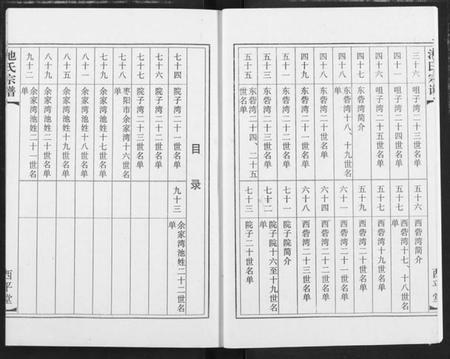 池氏宗谱
三十六 咀子湾二十三世名单
四十一 咀子湾二十四世名单
四十六 咀子湾二十五世名单
四十七 东砦湾简介
四十七 东砦湾十八、十九世名单
四十八 东砦湾二十世名单
东砦湾二十一世名单
东砦湾二十三世名单
五十五 东砦湾二十四、二十五世名单
五十六 西砦湾简介
五十七 西砦湾十七、十八世名单
五十九 西砦湾十九世名单
六十一 西砦湾二十世名单
六十四 西砦湾二十一世名单
六十八 西砦湾二十三世名单
七十一 院子院简介
七十二 院子院十六至十九世名单
七十三 院子二十世名单
西平堂
目录
七十四 院子湾二十一世名单
七十六 院子湾二十二世名单
七十七 院子湾二十三世名单
七十八 枣阳市余家湾十六世名单
七十九 余家湾池姓十七世名单
八十一 余家湾池姓十八世名单
八十五 余家湾池姓十九世名单
八十九 余家湾池姓二十世名单
九十二 余家湾池姓二十一世名单
九十三 余家湾池姓二十二世名单
池氏宗谱
西平堂